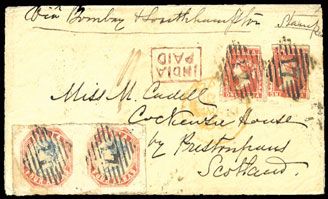 Via Bombay & Southhampton
Stamps
INDIA
PAID
Miss M. Cadell
Cockenzie House
by Prestonpans
Scotland.